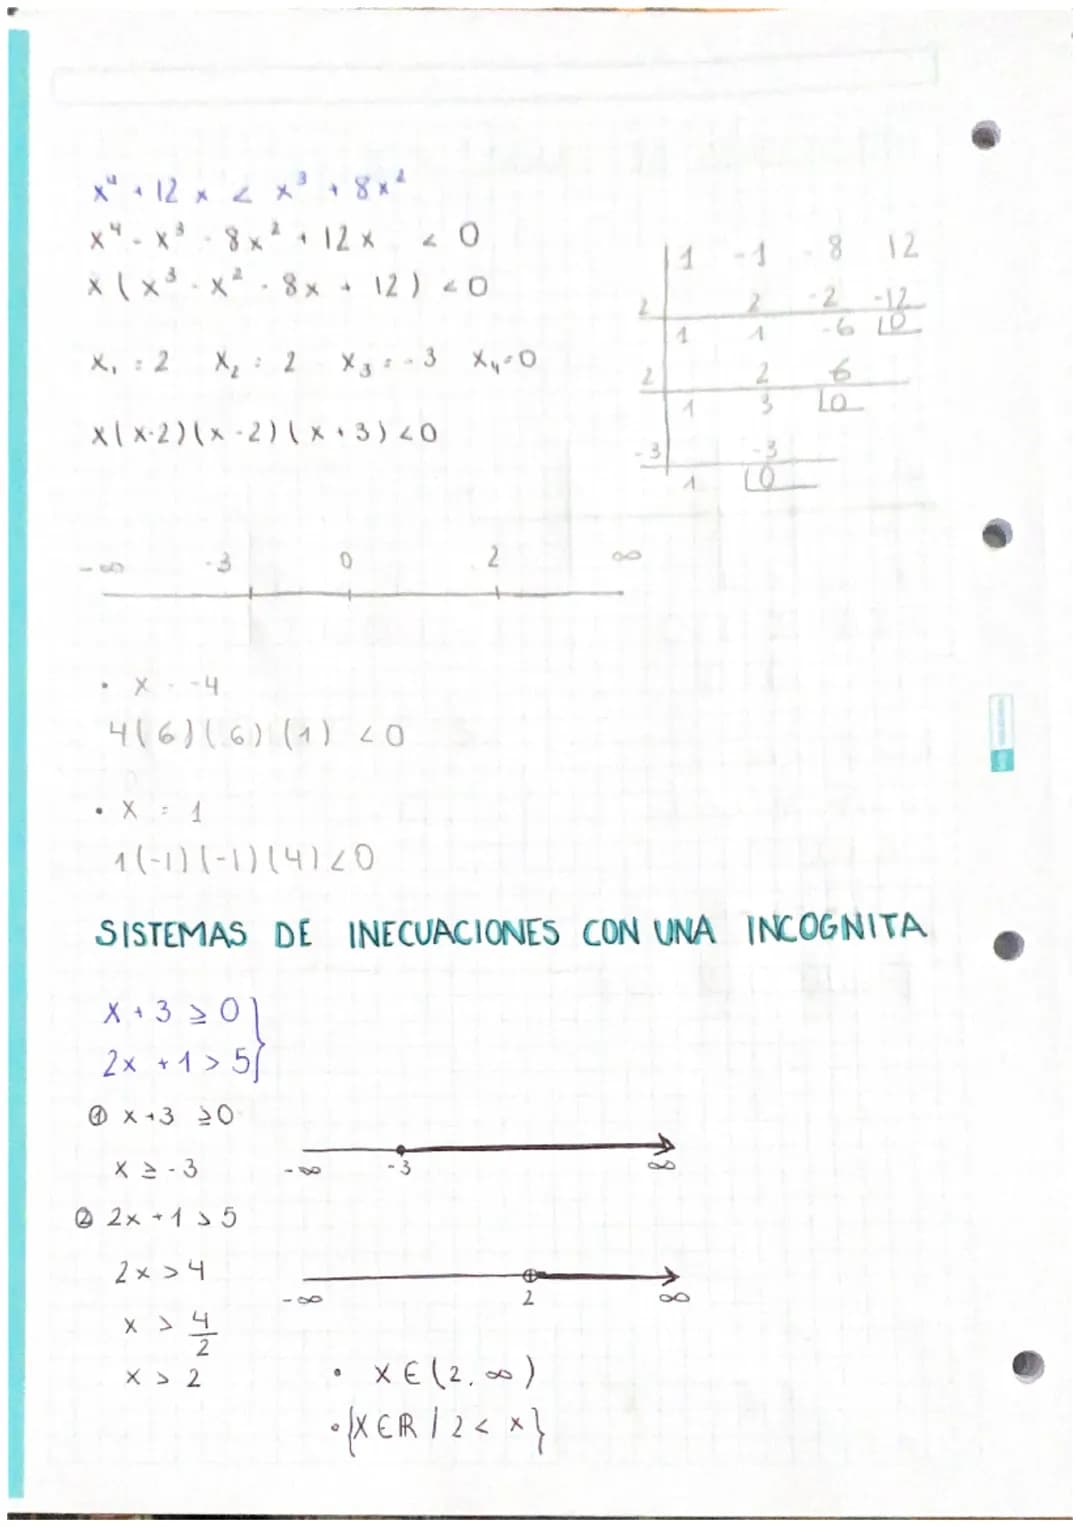 x⁴ + 12x < x³ + 8x²
x⁴ - x³ - 8x² + 12x < 0
x(x³ - x² - 8x + 12) < 0
x₁ = 2 x₂ = 2 x₃ = -3 x₄ = 0
x(x-2)(x-2)(x+3) < 0
1 -1 -8 12
2 2 -2 -12
1 1 -6 0
2 2 6
1 3 0
-3 -3
1 0
-∞ -3 0 2 ∞
• x = -4
4(6)(6)(1) < 0
• x = 1
1(-1)(-1)(4) < 0
SISTEMAS DE INECUACIONES CON UNA INCOGNITA
x + 3 ≥ 0 }
2x + 1 > 5 }
① x + 3 ≥ 0
x ≥ -3
-∞ -3 ∞
② 2x + 1 > 5
2x > 4
-∞ 2 ∞
x > 4/2
x > 2
• x ∈ (2, ∞)
• {x ∈ ℝ / 2 < x}